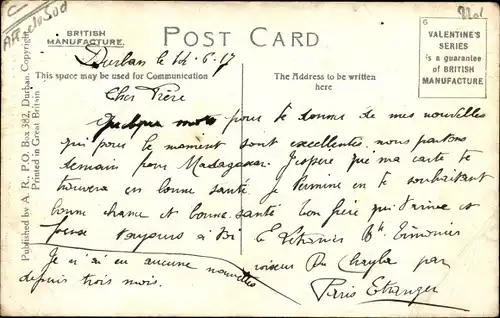 C
Af. du Sud
BRITISH
MANUFACTURE.
POST CARD
6
VALENTINE'S
SERIES
is a guarantee
of BRITISH
MANUFACTURE
Durban le 14.6.17
This space may be used for Communication
The Address to be written
here
Cher Frère
Quelques mots pour te donner de mes nouvelles
qui pour le moment sont excellentes, nous partons
demain pour Madagascar. J'espère que ma carte te
trouvera en bonne santé je termine en te souhaitant
bonne chance et bonne santé ton frère qui t'aime et
pense toujours à toi
Je n'ai eu aucune nouvelles
depuis trois mois.
croiseur Du Chayla par
Paris Etranger
Published by A. R., P.O. Box 382, Durban. Copyright.
Printed in Great Britain